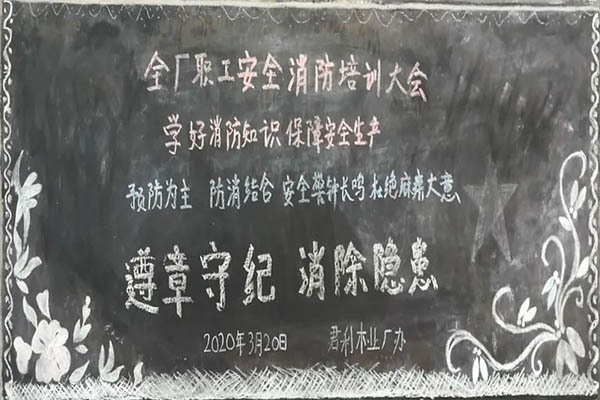 全厂职工安全消防培训大会
学好消防知识 保障安全生产
预防为主 防消结合 安全警钟长鸣 杜绝麻痹大意
遵章守纪 消除隐患
2020年3月20日 君利木业厂办